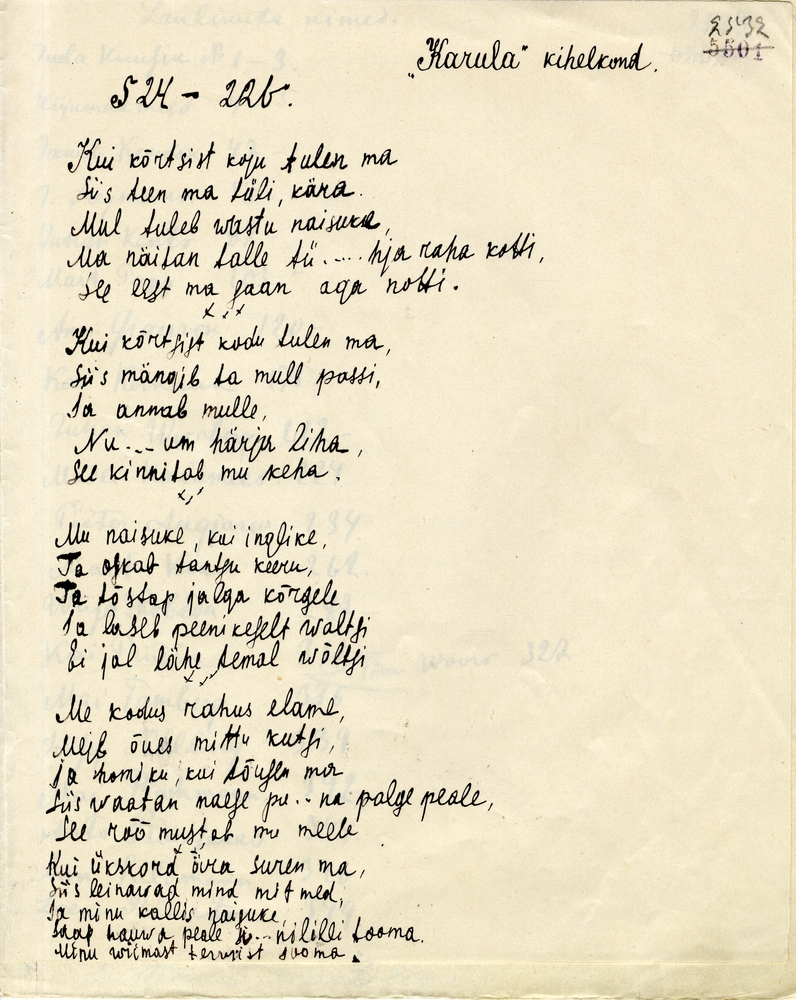 2532
5501
„Karula" kihelkond.
S 24 – 22b.
Kui kõrtsist koju tulen ma
Siis teen ma tüli, kära.
Mul tuleb wastu naisuke,
Ma näitan talle tü..... hja raha kotti,
See eest ma saan aga notti.
Kui kõrtsist kodu tulen ma,
Siis mängib ta mull possi,
Ja annab mulle,
Nu... um härja liha,
See kinnitab mu keha.
Mu naisuke, kui inglike,
Ta oskab tantsu keeru,
Ta tõstap jalga kõrgele
Ja laseb peenikeselt waltsi
Ei jal lähe temal wõltsi
Me kodus rahus elame,
Meil õues mittu kutsi,
ja homiku, kui tõusen ma
Siis waatan naese pu.. na palge peale,
See rõõmustab mu meele
Kui ükskord ära suren ma,
Siis leinawad mind mitmed,
Ja minu kallis naisuke,
Saap hauwa peale si... nililli tooma.
Minu wiimast terwist sooma.